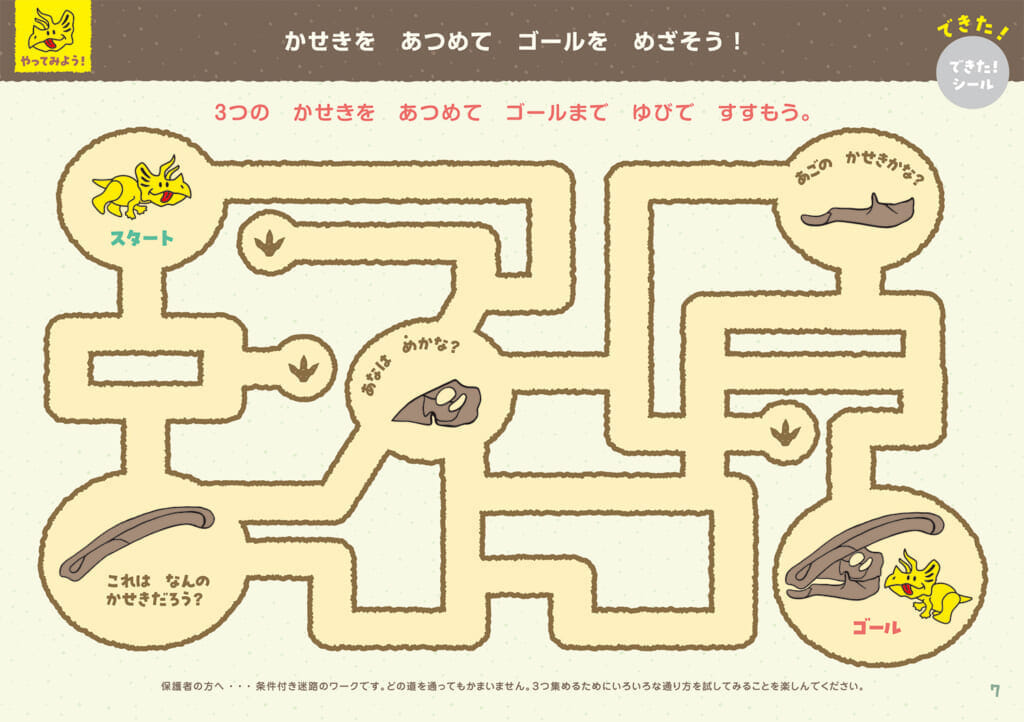 やってみよう！
かせきを　あつめて　ゴールを　めざそう！
できた！
できた！
シール
3つの　かせきを　あつめて　ゴールまで　ゆびで　すすもう。
スタート
あごの　かせきかな？
あなは　めかな？
これは　なんの
かせきだろう？
ゴール
保護者の方へ ・・・ 条件付き迷路のワークです。どの道を通ってもかまいません。3つ集めるためにいろいろな通り方を試してみることを楽しんでください。
7